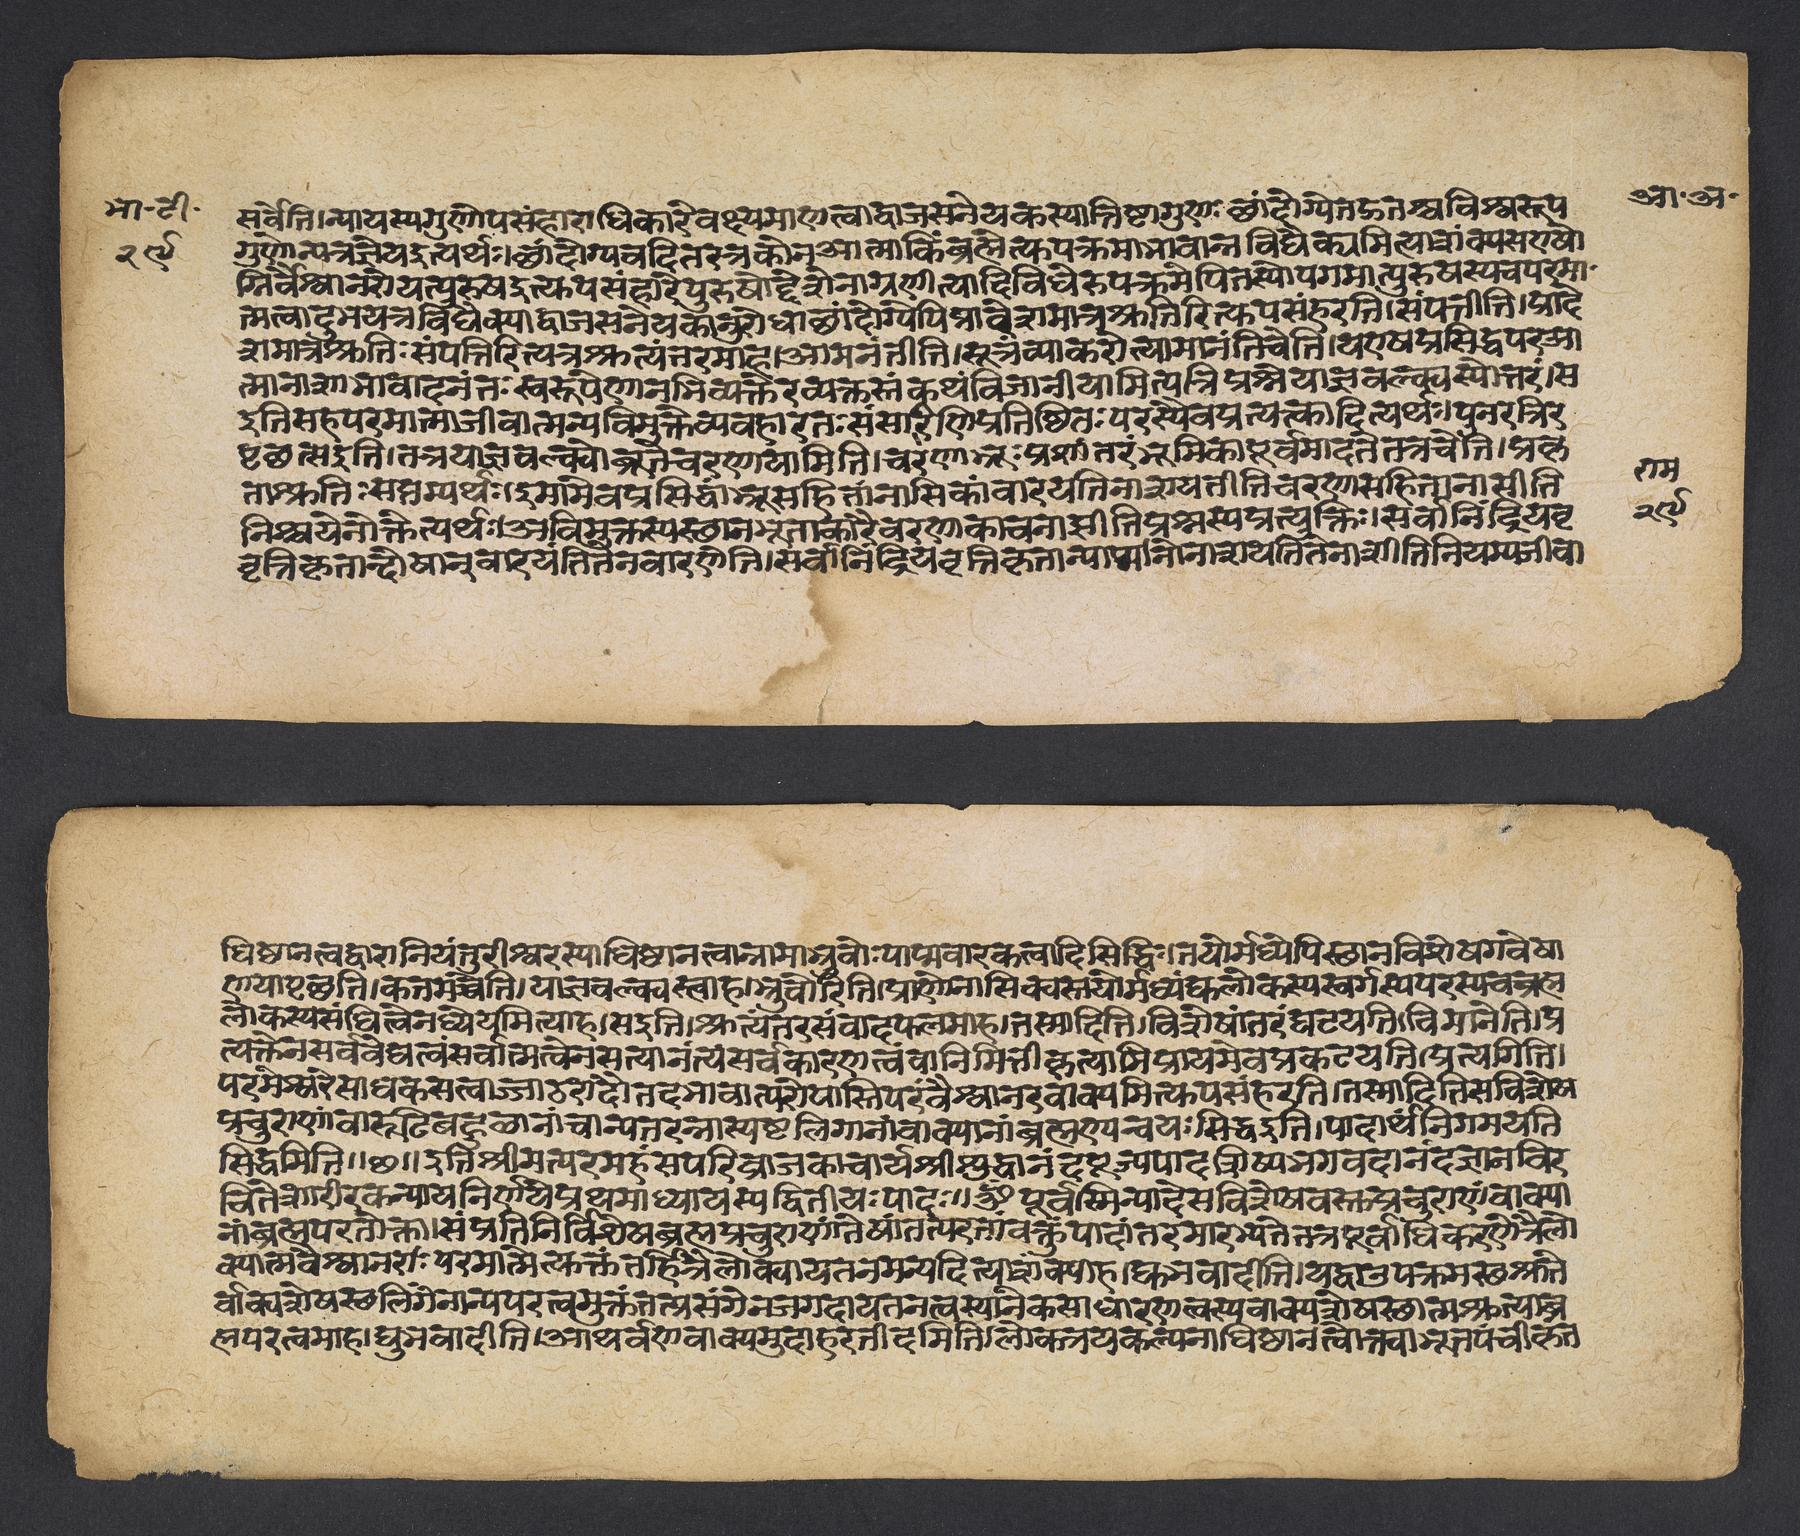 भा॰टी॰
२९
आ॰अ॰
सर्वेति।न्यायस्यगुणोपसंहाराधिकारेवक्ष्यमाणत्वाद्वाजसनेयकस्यातिष्टागुणःछांदोग्येतद्गतश्चविश्वरूप
गुणोन्यत्रज्ञेयइत्यर्थः।छांदोग्यवदितरत्रकोनुआत्माकिंब्रह्मेत्युपक्रमाभावान्नविद्यैक्यमित्याशंक्यसएषो
ग्निर्वैश्वानरोयत्पुरुषइत्युपसंहारेपुरुषोद्देशेनाग्नणीत्यादिविधेरुपक्रमेपितस्योपगमात्पुरुषस्यचपरमा
त्मत्वादुभयत्रविद्यैक्याद्वाजसनेयकानुरोधाछांदोग्येपिप्रादेशमात्रश्रुतिरित्युपसंहरति।संपत्तीति।प्रादे
शमात्रश्रुतिःसंपत्तिरित्यत्रश्रुत्यंतरमाह।आमनंतीति।सूत्रंव्याकरोत्यामानंतिचेति।यएषप्रसिद्धपरआ
त्मानाशाभावादनंतःस्वरूपेणानभिव्यक्तेरव्यक्तस्तंकथंविजानीयामित्यत्रिप्रश्नेयाज्ञवल्क्यस्योत्तरं।स
इतिसहपरमात्माजीवात्मन्यविमुक्तेव्यवहारतःसंसारिणिप्रतिष्ठितःपरस्यैवप्रत्यत्कादित्यर्थः।पुनरत्रिर
पृछत्सइति।तत्रयाज्ञवल्क्योब्रूतेवरणायामिति।वरणाभ्रूःप्रश्नांतरंभूमिकापूर्वमादत्तेतत्रचेति।प्रकृ
ताश्रुतिःसप्तम्यर्थः।इमामेवप्रसिद्धांभ्रूसहितांनासिकांवारयतिनाशयतीतिवरणासहितानासीति
निश्चयेनोक्तेत्यर्थः।अविमुक्तस्यस्थानभूताकावैवरणाकाचनासीतिप्रश्नस्यप्रत्युक्तिः।सर्वानिंद्रियवृ
वृत्तिकृतान्दोषान्वारयंतितेनवारणेति।सर्वानिंद्रियवृत्तिकृतान्पाप्मनोनाशयतितेनाशीतिनियम्यजीवा
राम
२९
धिष्ठानत्वद्वारानियंतुरीश्वरस्याधिष्ठानत्वान्नासाभ्रुवोःपाप्मवारकत्वादिसिद्धिः।तयोर्मध्येपिस्थानविशेषगवेषा
णयापृछति।कतमंचेति।याज्ञवल्क्यस्त्वाह।भ्रुवोरिति।घ्राणेनासिक्यस्तयोर्मध्यंद्युलोकस्यस्वर्गस्यपरस्यचब्रह्म
लोकस्यसंधित्वेनध्येयमित्याह।सइति।श्रुत्यंतरसंवादफलमाह।तस्मादिति।विशेषांतरंघटयति।विमानेति।प्र
त्यक्तेनसर्ववेद्यत्वंसर्वात्मत्वेनसत्यानंत्यंसर्वकारणत्वंवानिमित्तीकृत्याभिप्रायमेवप्रकटयति।प्रत्यगिति।
परमेश्वरेसाधकसत्वाज्जाठरादौतदभावात्परोपास्तिपरंवैश्वानरवाक्यमित्युपसंहरति।तस्मादितिसविशेष
प्रचुराणांवारूढिबहुळानांचान्यतरत्रास्पष्टलिंगानांवाक्यानांब्रह्मण्यन्वयःसिद्धइति।पादार्थंनिगमयति
सिद्धमिति॥छ॥इतिश्रीमत्परमहंसपरिव्राजकाचार्यश्रीशुद्धानंदपूज्यपादशिष्यभगवदानंदज्ञानविर
चितेशारीरकन्यायनिर्णयेप्रथमाध्यायस्यद्वितीयःपादः॥ॐ पूर्वस्मिन्पादेसविशेषवस्तुप्रचुराणांवाक्या
नांब्रह्मपरतोक्ता।संप्रतिनिर्विशेषब्रह्मप्रचुराणांतेषांतत्परतांवक्तुंपादांतरमारभ्यतेतत्रपूर्वाधिकरणेत्रैलो
क्यात्मवैश्वानरःपरमात्मेत्युक्तंतर्हित्रैलोक्यायतनमन्यदित्याशंक्याह।द्युभवादीति।यद्वाउपक्रमस्थश्रुते
र्वाक्यशेषस्थलिंगेनान्यपरत्वमुक्तंतत्प्रसंगेनजगदायतनत्वस्यानेकसाधारणत्वस्यवाक्यशेषस्थात्मश्रुत्याब्र
ह्मपरत्वमाह।द्युभवादीति।आथर्वणवाक्यमुदाहरतीदमिति।लोकत्रयकल्पनाधिष्ठानत्वोक्त्याभूतपंचीकृत